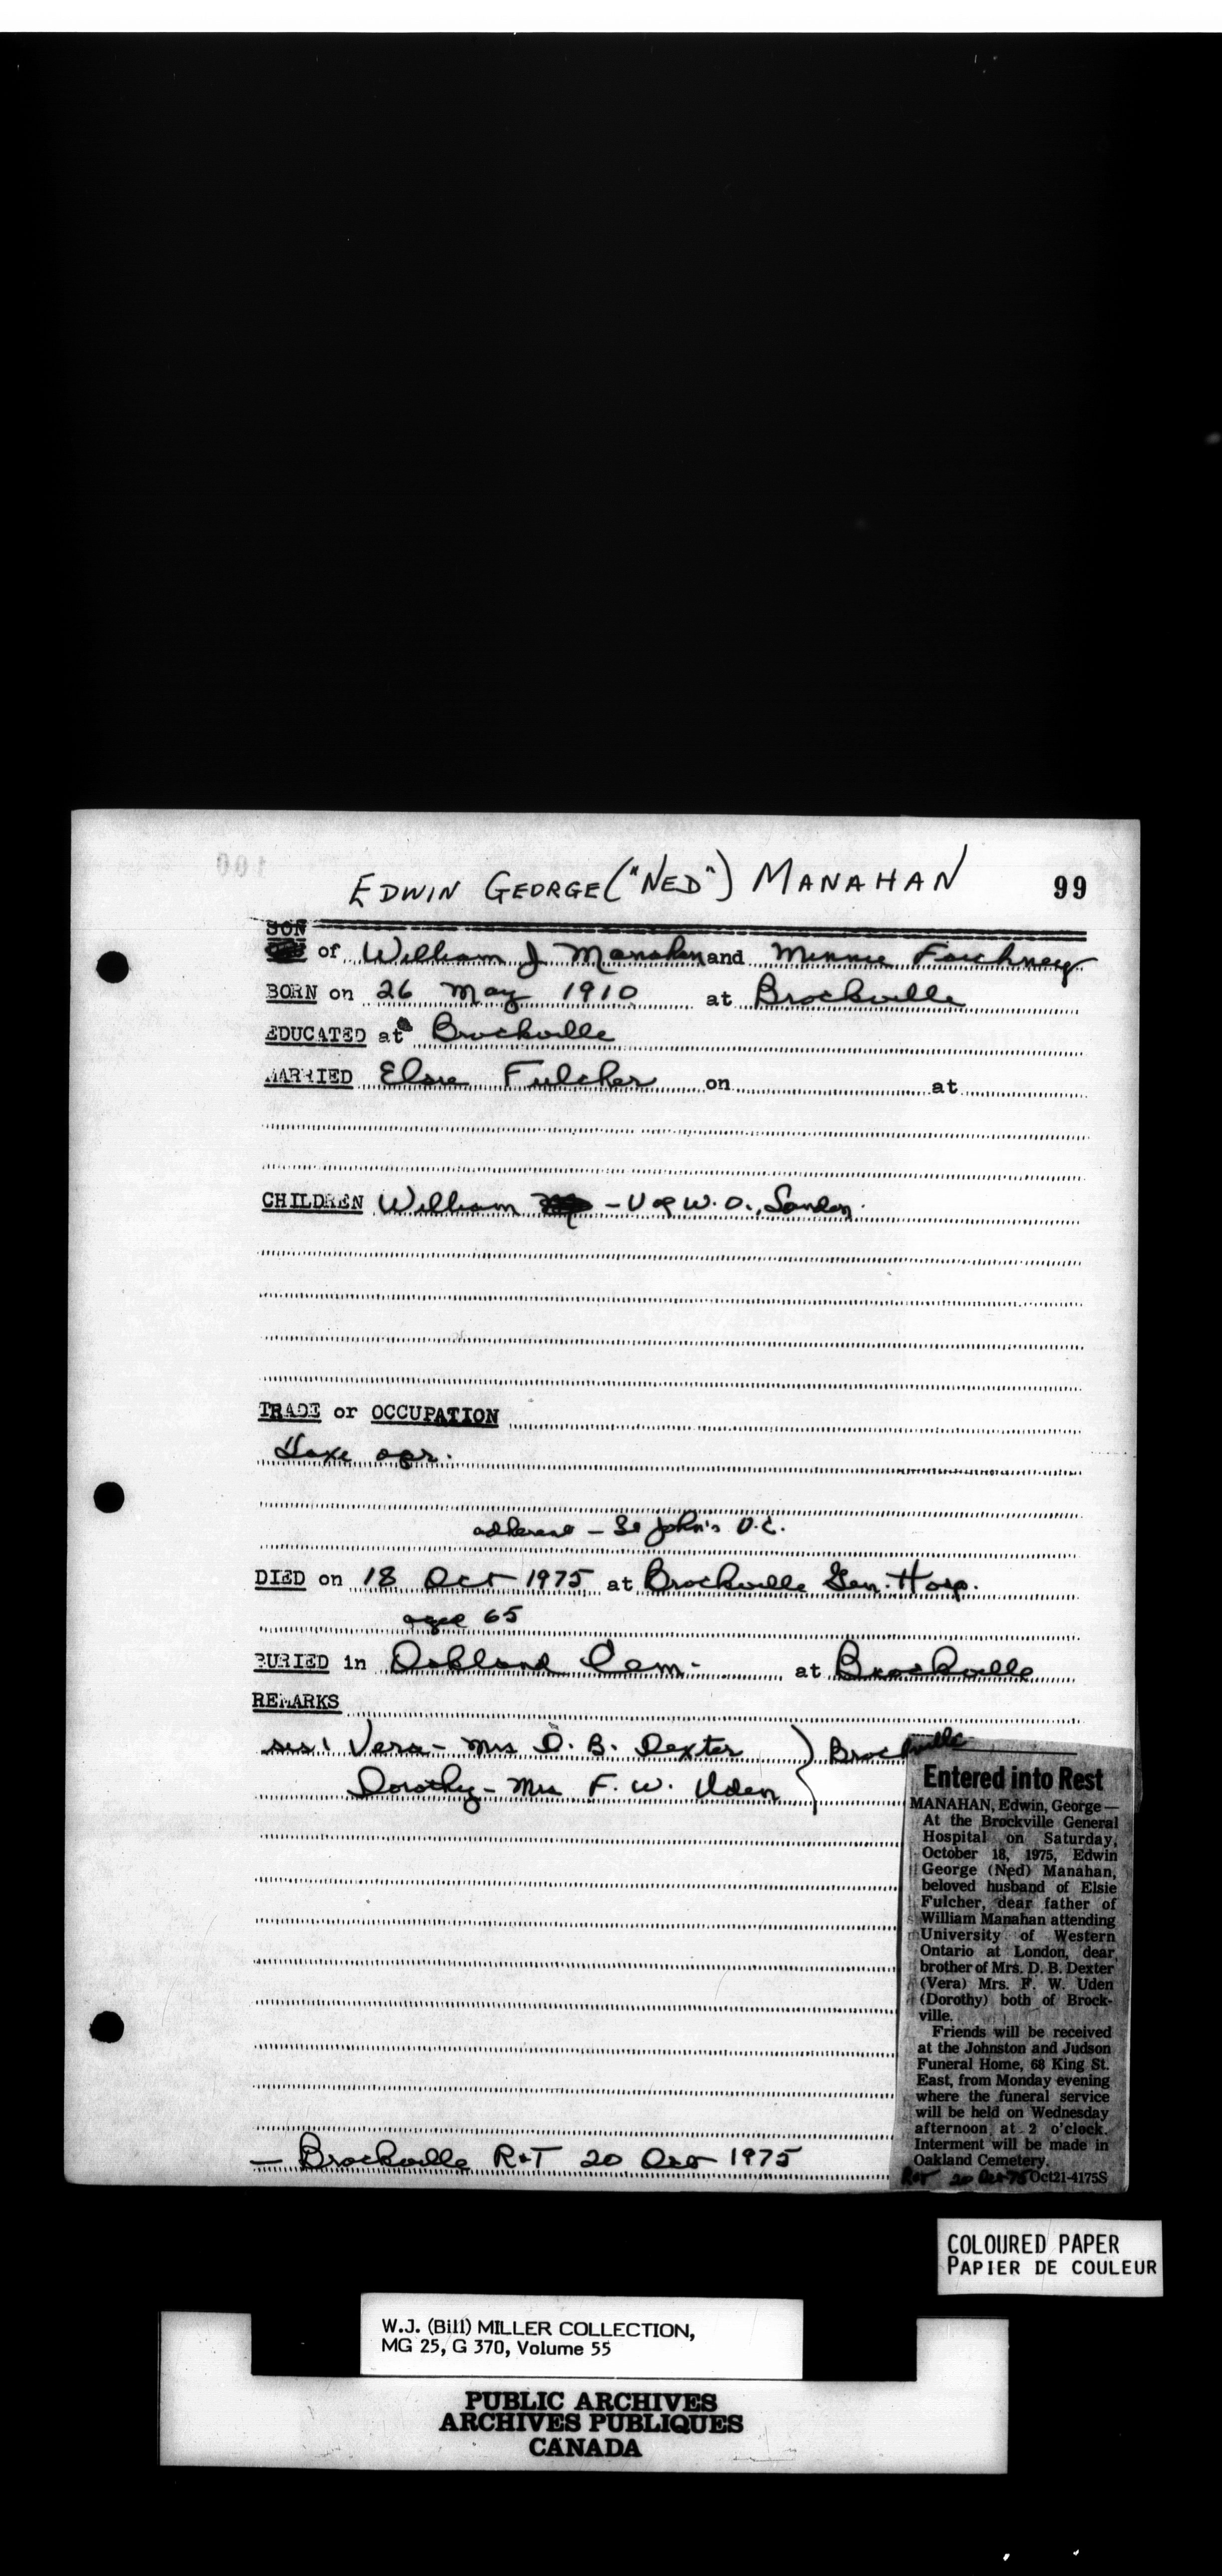 EDWIN GEORGE ("NED") MANAHAN 99
SON
of William J Manahan and Minnie Forchney
BORN on 26 May 1910 at Brockville
EDUCATED at Brockville
MARRIED Elsie Fulcher on at
CHILDREN William - U of W.O., London
TRADE or OCCUPATION
Taxi opr.
adherent - St John's U.C.
DIED on 18 Oct 1975 at Brockville Gen. Hosp.
aged 65
BURIED in Oakland Cem. at Brockville
REMARKS
sis: Vera - Mrs D. B. Dexter } Brockville
Dorothy - Mrs F. W. Uden
Entered into Rest
MANAHAN, Edwin, George —
At the Brockville General
Hospital on Saturday,
October 18, 1975, Edwin
George (Ned) Manahan,
beloved husband of Elsie
Fulcher, dear father of
William Manahan attending
University of Western
Ontario at London, dear
brother of Mrs. D. B. Dexter
(Vera) Mrs. F. W. Uden
(Dorothy) both of Brock-
ville.
Friends will be received
at the Johnston and Judson
Funeral Home, 68 King St.
East, from Monday evening
where the funeral service
will be held on Wednesday
afternoon at 2 o'clock.
Interment will be made in
Oakland Cemetery.
R&T 20 Oct 75 Oct21-4175S
— Brockville R&T 20 Oct 1975
COLOURED PAPER
PAPIER DE COULEUR
W.J. (Bill) MILLER COLLECTION,
MG 25, G 370, Volume 55
PUBLIC ARCHIVES
ARCHIVES PUBLIQUES
CANADA